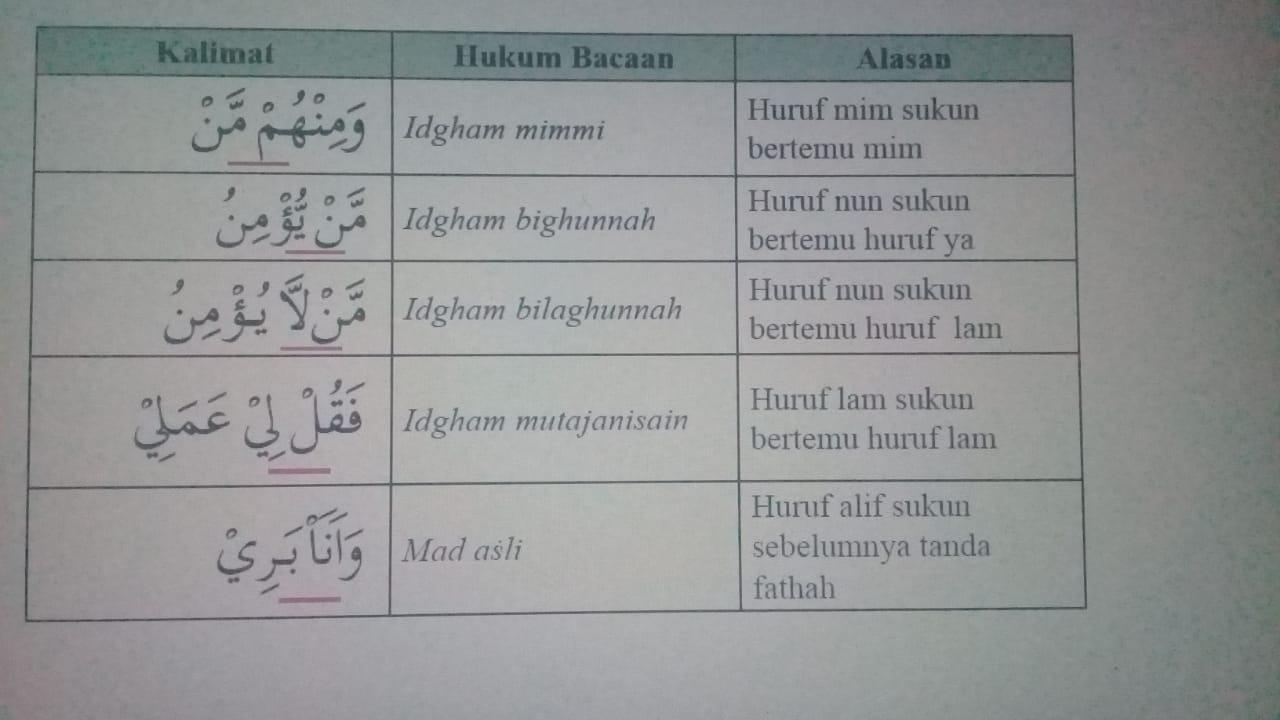 Kalimat Hukum Bacaan Alasan
وَمِنْهُمْ مَّنْ Idgham mimmi Huruf mim sukun
bertemu mim
مَّنْ يُّؤْمِنُ Idgham bighunnah Huruf nun sukun
bertemu huruf ya
مَّنْ لَّا يُؤْمِنُ Idgham bilaghunnah Huruf nun sukun
bertemu huruf lam
فَقُلْ لِيْ عَمَلِيْ Idgham mutajanisain Huruf lam sukun
bertemu huruf lam
وَاَنَا۠ بَرِيْ Mad aṡli Huruf alif sukun
sebelumnya tanda
fathah